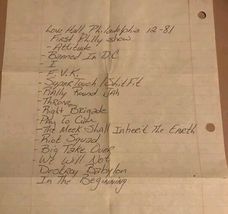 Love Hall, Philadelphia 12-81
First Philly show
- Attitude
- Banned In D.C
- I
- F.V.K.
- Supertouch / ShitFit
- Rally Round Jah
- Throne
- Right Brigade
- Pay To Cum
- The Meek Shall Inherit The Earth
- Riot Squad
- Big Take Over
- We Will Not
- Destroy Babylon
- In The Beginning